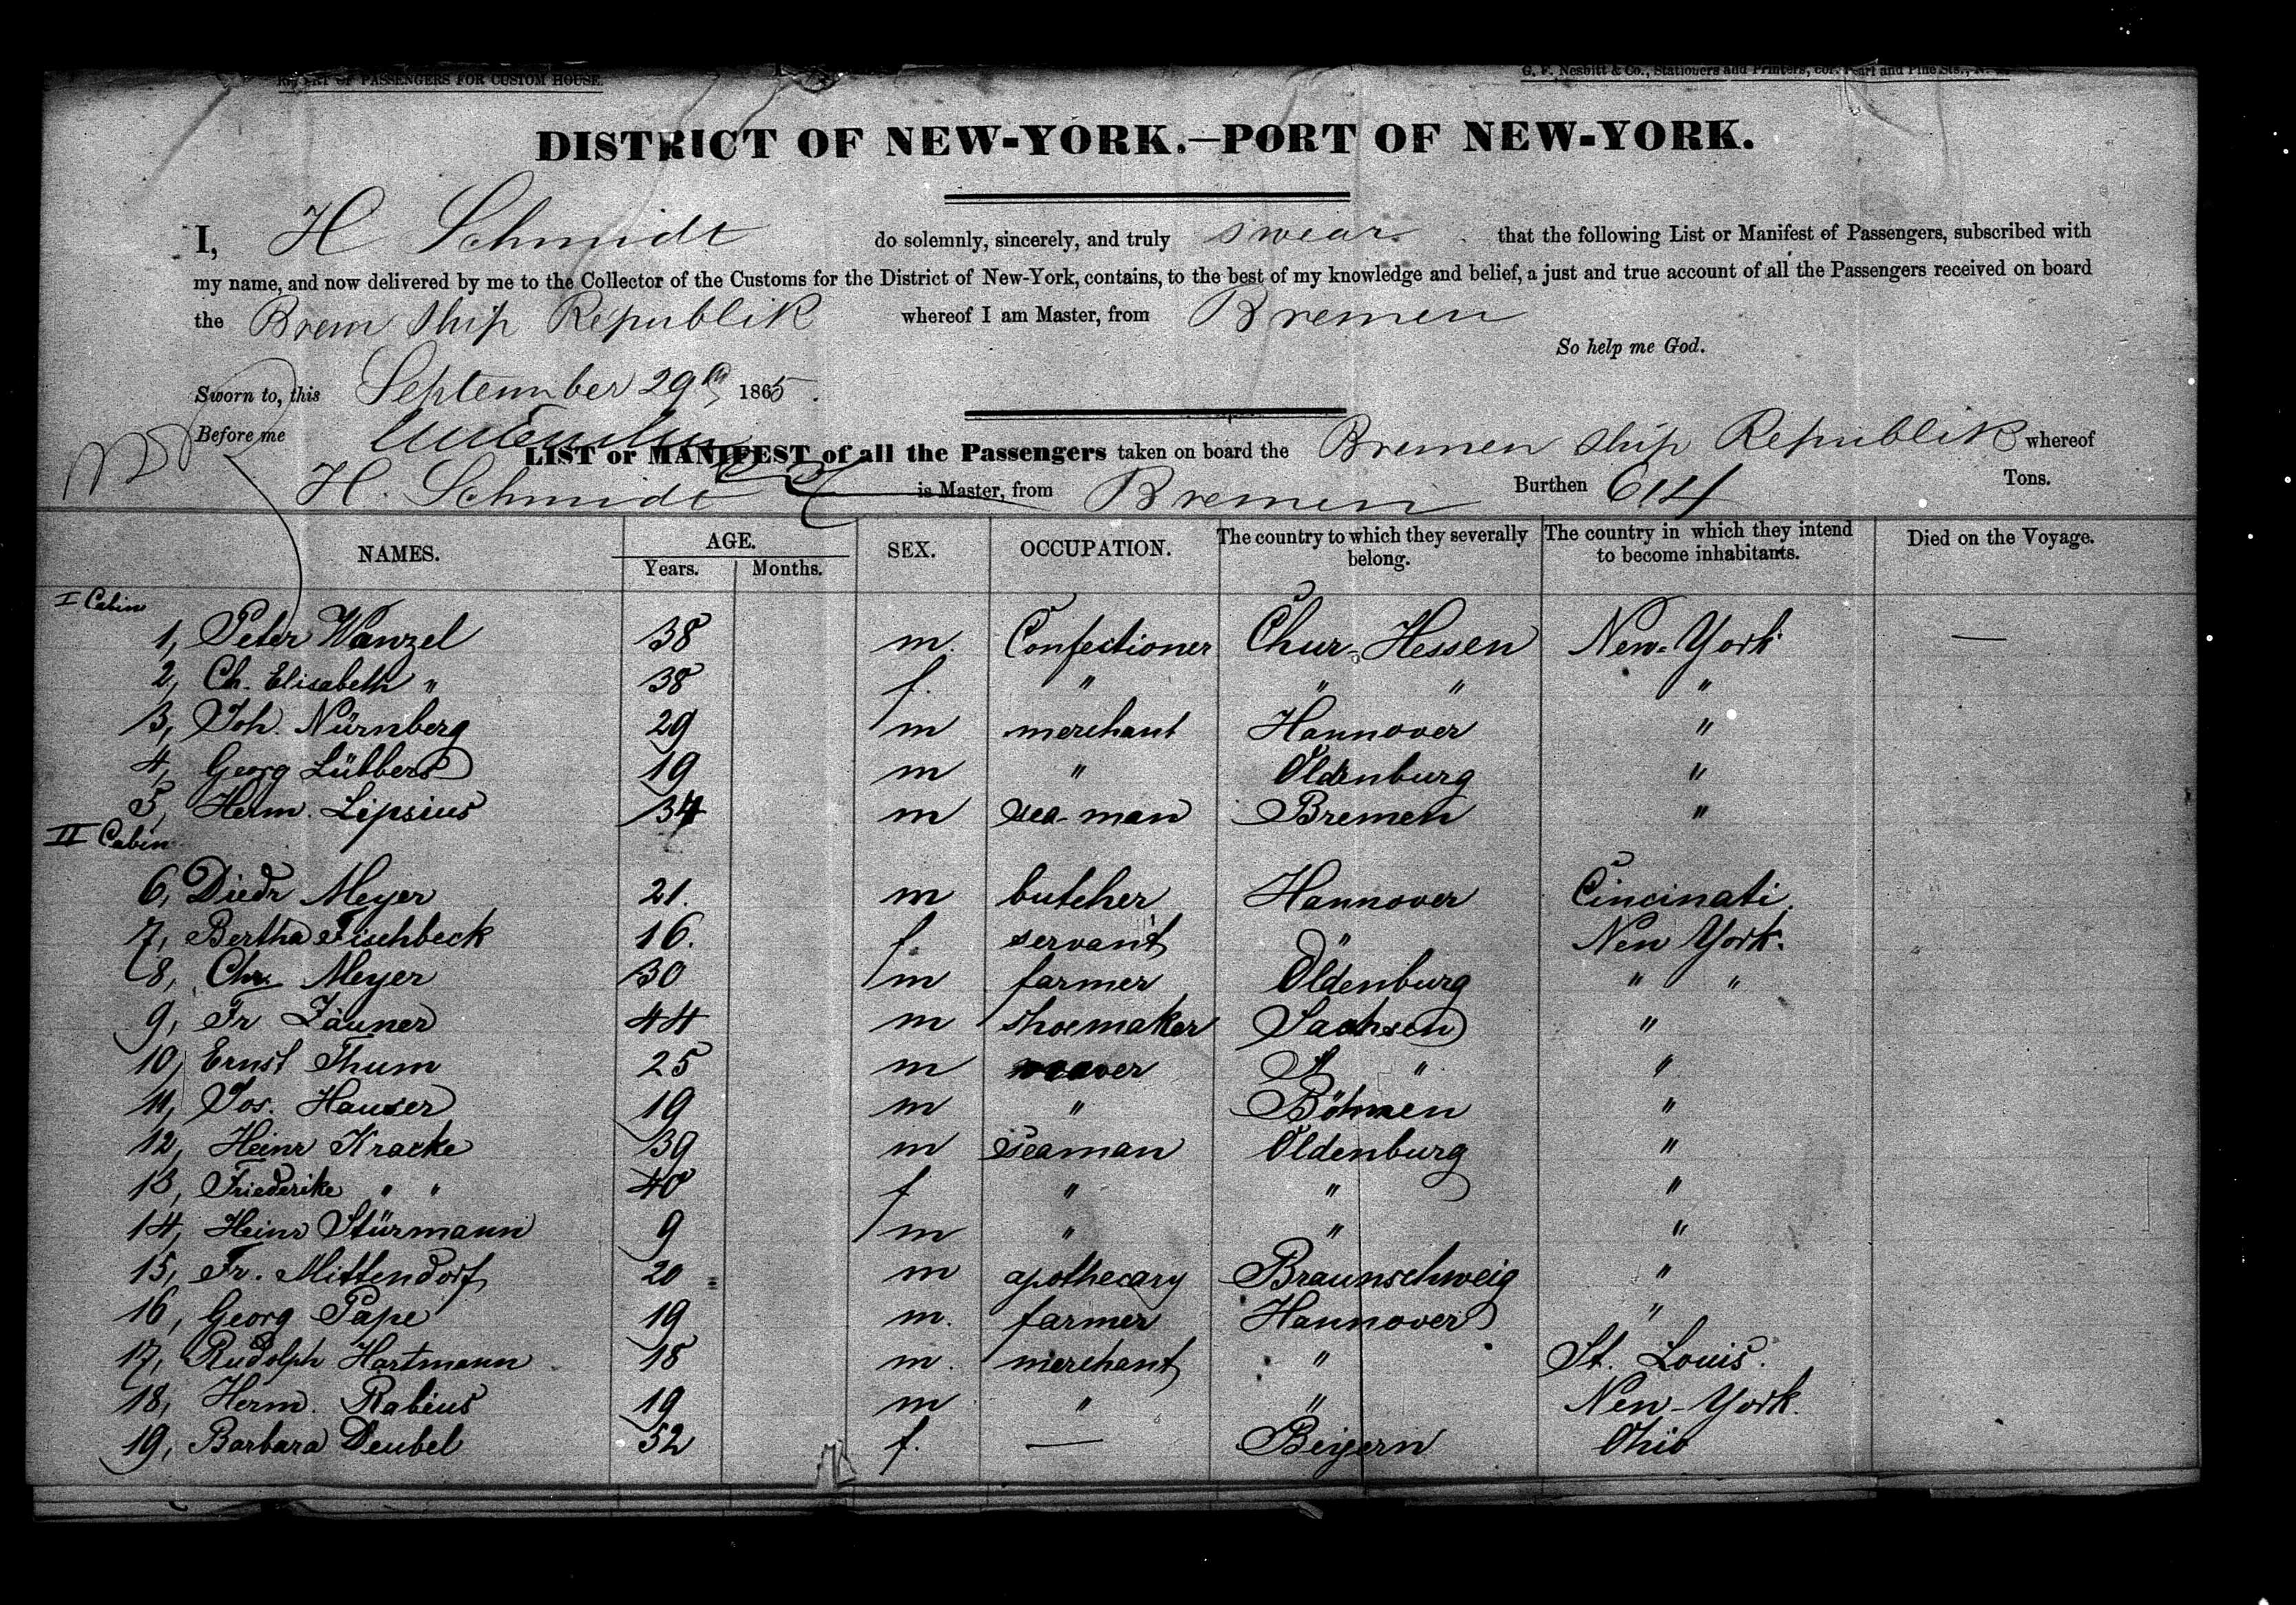 REPORT OF PASSENGERS FOR CUSTOM HOUSE.
G. F. Nesbitt & Co., Stationers and Printers, cor. Pearl and Pine Sts.,
DISTRICT OF NEW-YORK.—PORT OF NEW-YORK.
I, H Schmidt do solemnly, sincerely, and truly swear that the following List or Manifest of Passengers, subscribed with
my name, and now delivered by me to the Collector of the Customs for the District of New-York, contains, to the best of my knowledge and belief, a just and true account of all the Passengers received on board
the Brem ship Republik whereof I am Master, from Bremen
So help me God.
Sworn to, this September 29th 1865.
Before me
LIST or MANIFEST of all the Passengers taken on board the Bremen ship Republik whereof
H. Schmidt is Master, from Bremen Burthen 614 Tons.
NAMES. AGE. Years. Months. SEX. OCCUPATION. The country to which they severally belong. The country in which they intend to become inhabitants. Died on the Voyage.
I Cabin
1, Peter Wanzel 38 m. Confectioner Chur-Hessen New-York —
2, Ch. Elisabeth " 38 f. " " " "
3, Joh. Nürnberg 29 m merchant Hannover "
4, Georg Lübbers 19 m " Oldenburg "
5, Herm. Lipsius 34 m sea-man Bremen "
II Cabin
6, Diedr Meyer 21. m butcher Hannover Cincinati.
7, Bertha Fischbeck 16. f. servant " New York.
8, Chr. Meyer 30 m farmer Oldenburg " "
9, Fr Zäuner 44 m shoemaker Sachsen "
10, Ernst Thum 25 m weaver " "
11, Jos. Hauser 19 m " Böhmen "
12, Heinr Kracke 39 m seaman Oldenburg "
13, Friederike " " 40 f " " "
14, Heinr Stürmann 9 m " " "
15, Fr. Mittendorf 20 m apothecary Braunschweig "
16, Georg Pape 19 m. farmer Hannover "
17, Rudolph Hartmann 18 m. merchant " St. Louis.
18, Herm. Rabius 19 m " " New-York.
19, Barbara Deubel 52 f. — Beyern Ohio